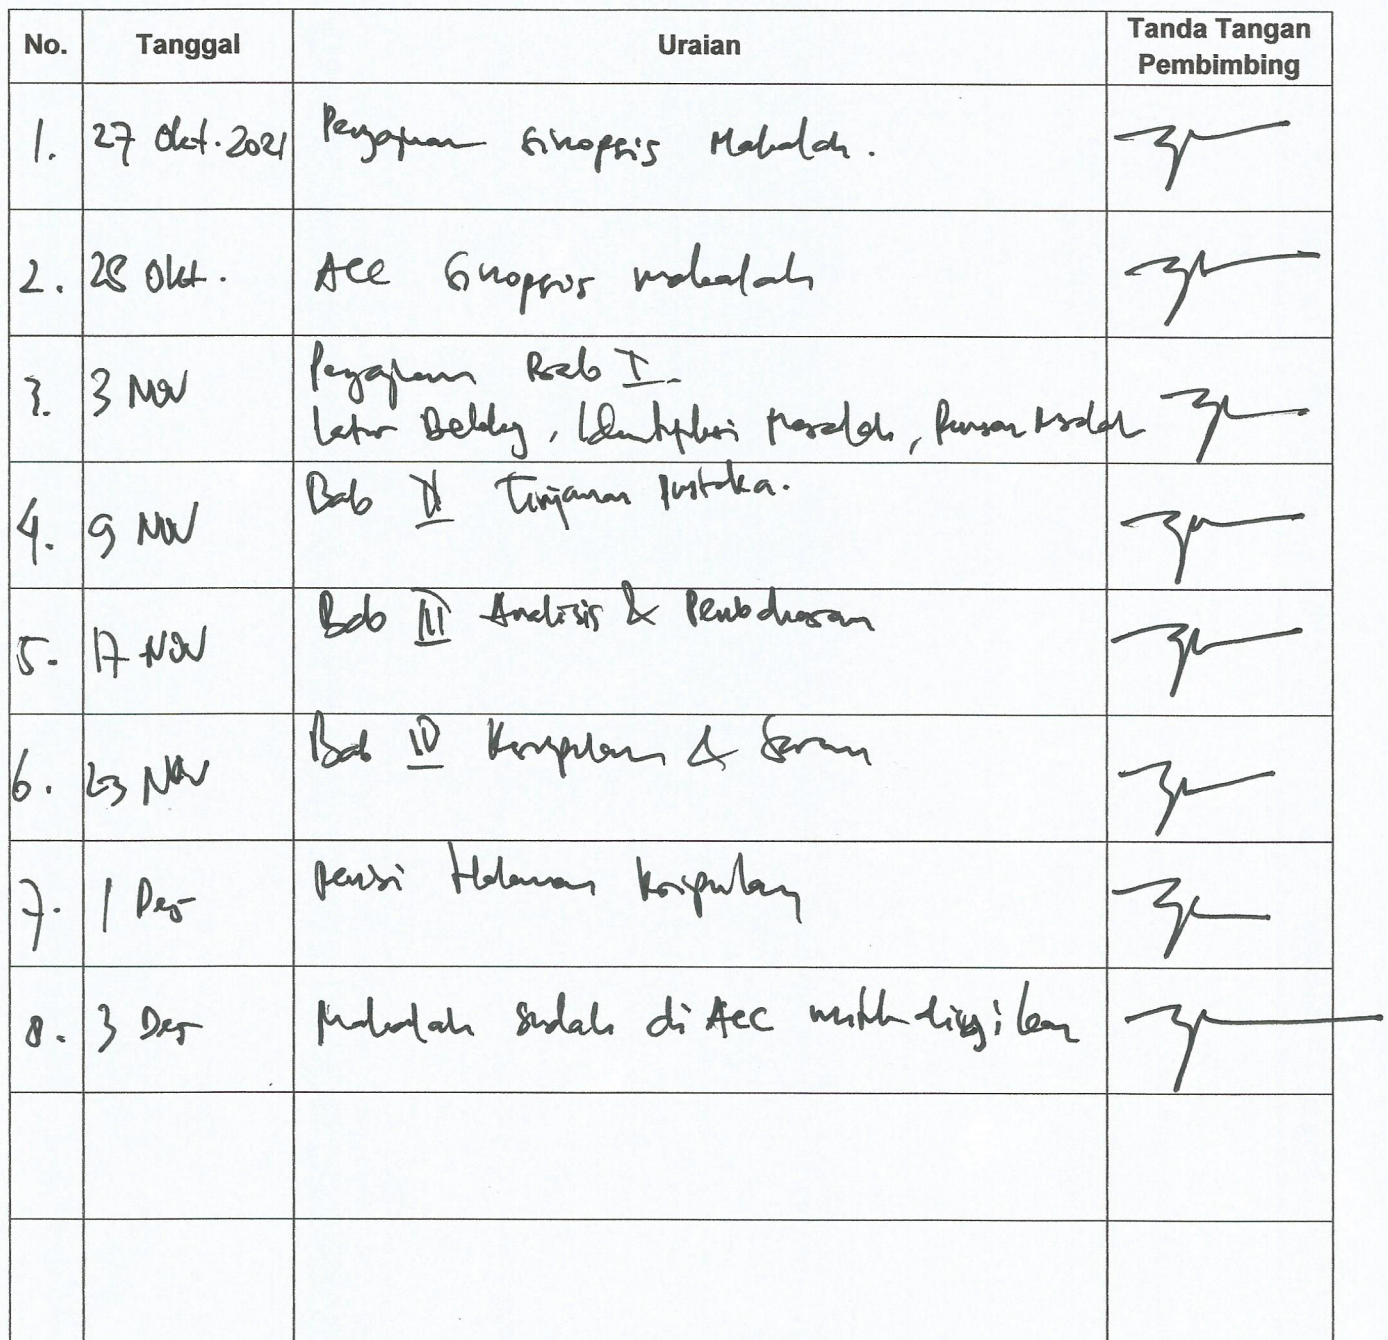 No. Tanggal Uraian Tanda Tangan Pembimbing
1. 27 Okt. 2021 Pengajuan Sinopsis Makalah.
2. 28 Okt. Acc Sinopsis makalah
3. 3 Nov Pengajuan Bab I.
Latar Belakang, Identifikasi Masalah, Rumusan Masalah
4. 9 Nov Bab II Tinjauan Pustaka.
5. 17 Nov Bab III Analisis & Pembahasan
6. 23 Nov Bab IV Kesimpulan & Saran
7. 1 Des revisi Halaman Kesimpulan
8. 3 Des Makalah sudah di Acc untuk diujikan